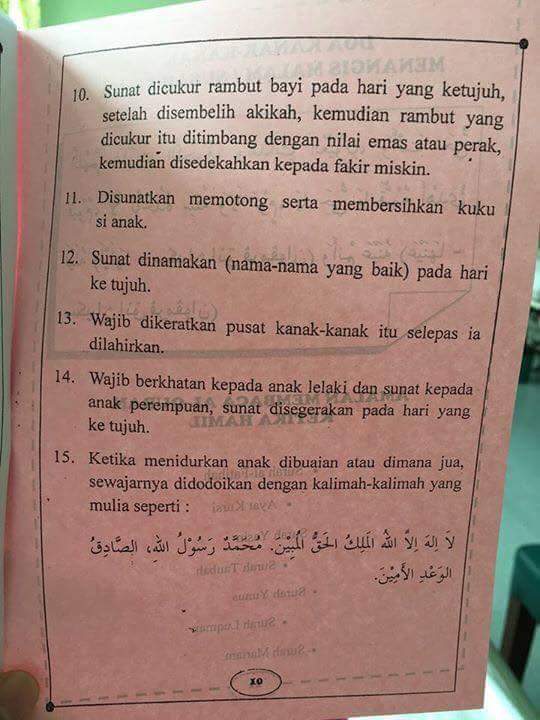 10. Sunat dicukur rambut bayi pada hari yang ketujuh,
setelah disembelih akikah, kemudian rambut yang
dicukur itu ditimbang dengan nilai emas atau perak,
kemudian disedekahkan kepada fakir miskin.
11. Disunatkan memotong serta membersihkan kuku
si anak.
12. Sunat dinamakan (nama-nama yang baik) pada hari
ke tujuh.
13. Wajib dikeratkan pusat kanak-kanak itu selepas ia
dilahirkan.
14. Wajib berkhatan kepada anak lelaki dan sunat kepada
anak perempuan, sunat disegerakan pada hari yang
ke tujuh.
15. Ketika menidurkan anak dibuaian atau dimana jua,
sewajarnya didodoikan dengan kalimah-kalimah yang
mulia seperti :
لاَ اِلهَ اِلاَّ اللهُ الْمَلِكُ الْحَقُّ الْمُبِيْنُ. مُحَمَّدٌ رَسُوْلُ اللهِ، الصَّادِقُ
الوَعْدِ الأَمِيْنَ.
10